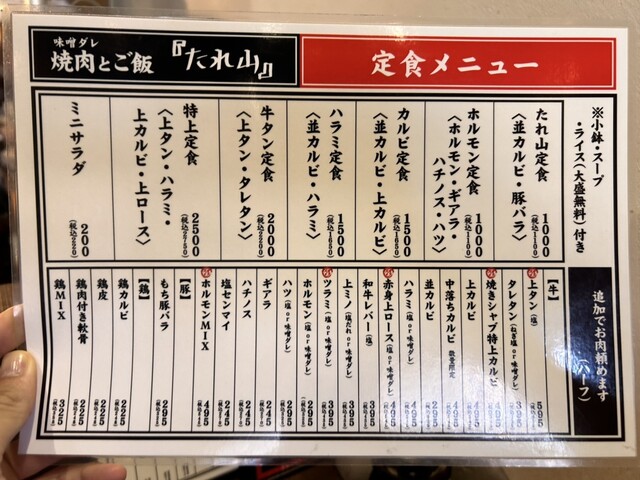 味噌ダレ
焼肉とご飯
『たれ山』
定食メニュー
※小鉢・スープ
・ライス(大盛無料)付き
たれ山定食
〈並カルビ・豚バラ〉
1000
(税込1100)
ホルモン定食
〈ホルモン・ギアラ・
ハチノス・ハツ〉
1000
(税込1100)
カルビ定食
〈並カルビ・上カルビ〉
1500
(税込1650)
ハラミ定食
〈並カルビ・ハラミ〉
1500
(税込1650)
牛タン定食
〈上タン・タレタン〉
2000
(税込2200)
特上定食
〈上タン・ハラミ・
上カルビ・上ロース〉
2500
(税込2750)
ミニサラダ
200
(税込220)
追加でお肉頼めます
(ハーフ)
【牛】
上タン(塩)
595
タレタン(ねぎ塩or味噌ダレ)
395
焼きシャブ特上カルビ
495
上カルビ
495
中落ちカルビ 数量限定
495
並カルビ
295
ハラミ(塩or味噌ダレ)
495
赤身上ロース(塩or味噌ダレ)
495
和牛レバー(塩)
395
上ミノ(塩だれor味噌ダレ)
395
ツラミ(塩or味噌ダレ)
395
ホルモン(塩or味噌ダレ)
295
ハツ(塩or味噌ダレ)
295
ギアラ
245
ハチノス
245
塩センマイ
245
ホルモンMIX
495
【豚】
もち豚バラ
295
【鶏】
鶏カルビ
225
鶏皮
225
鶏肉付き軟骨
225
鶏MIX
325